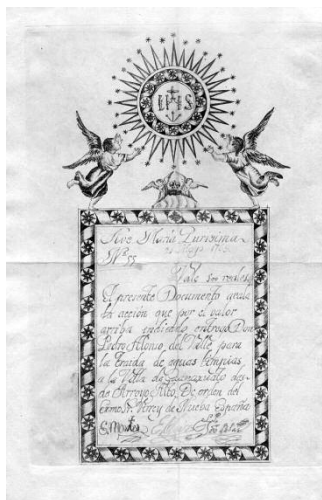 IHS
Ave María Purísima
Mayo
Nº 55
Vale 500 reales
El presente Documento
la acción que por el valor
arriba indicado entregó Don
Pedro Alonso del Valle para
la traída de aguas limpias
a la Villa de Guanaxuato des-
de Arroyo Alto. De orden del
Exmo. Sr. Virrey de Nueva España